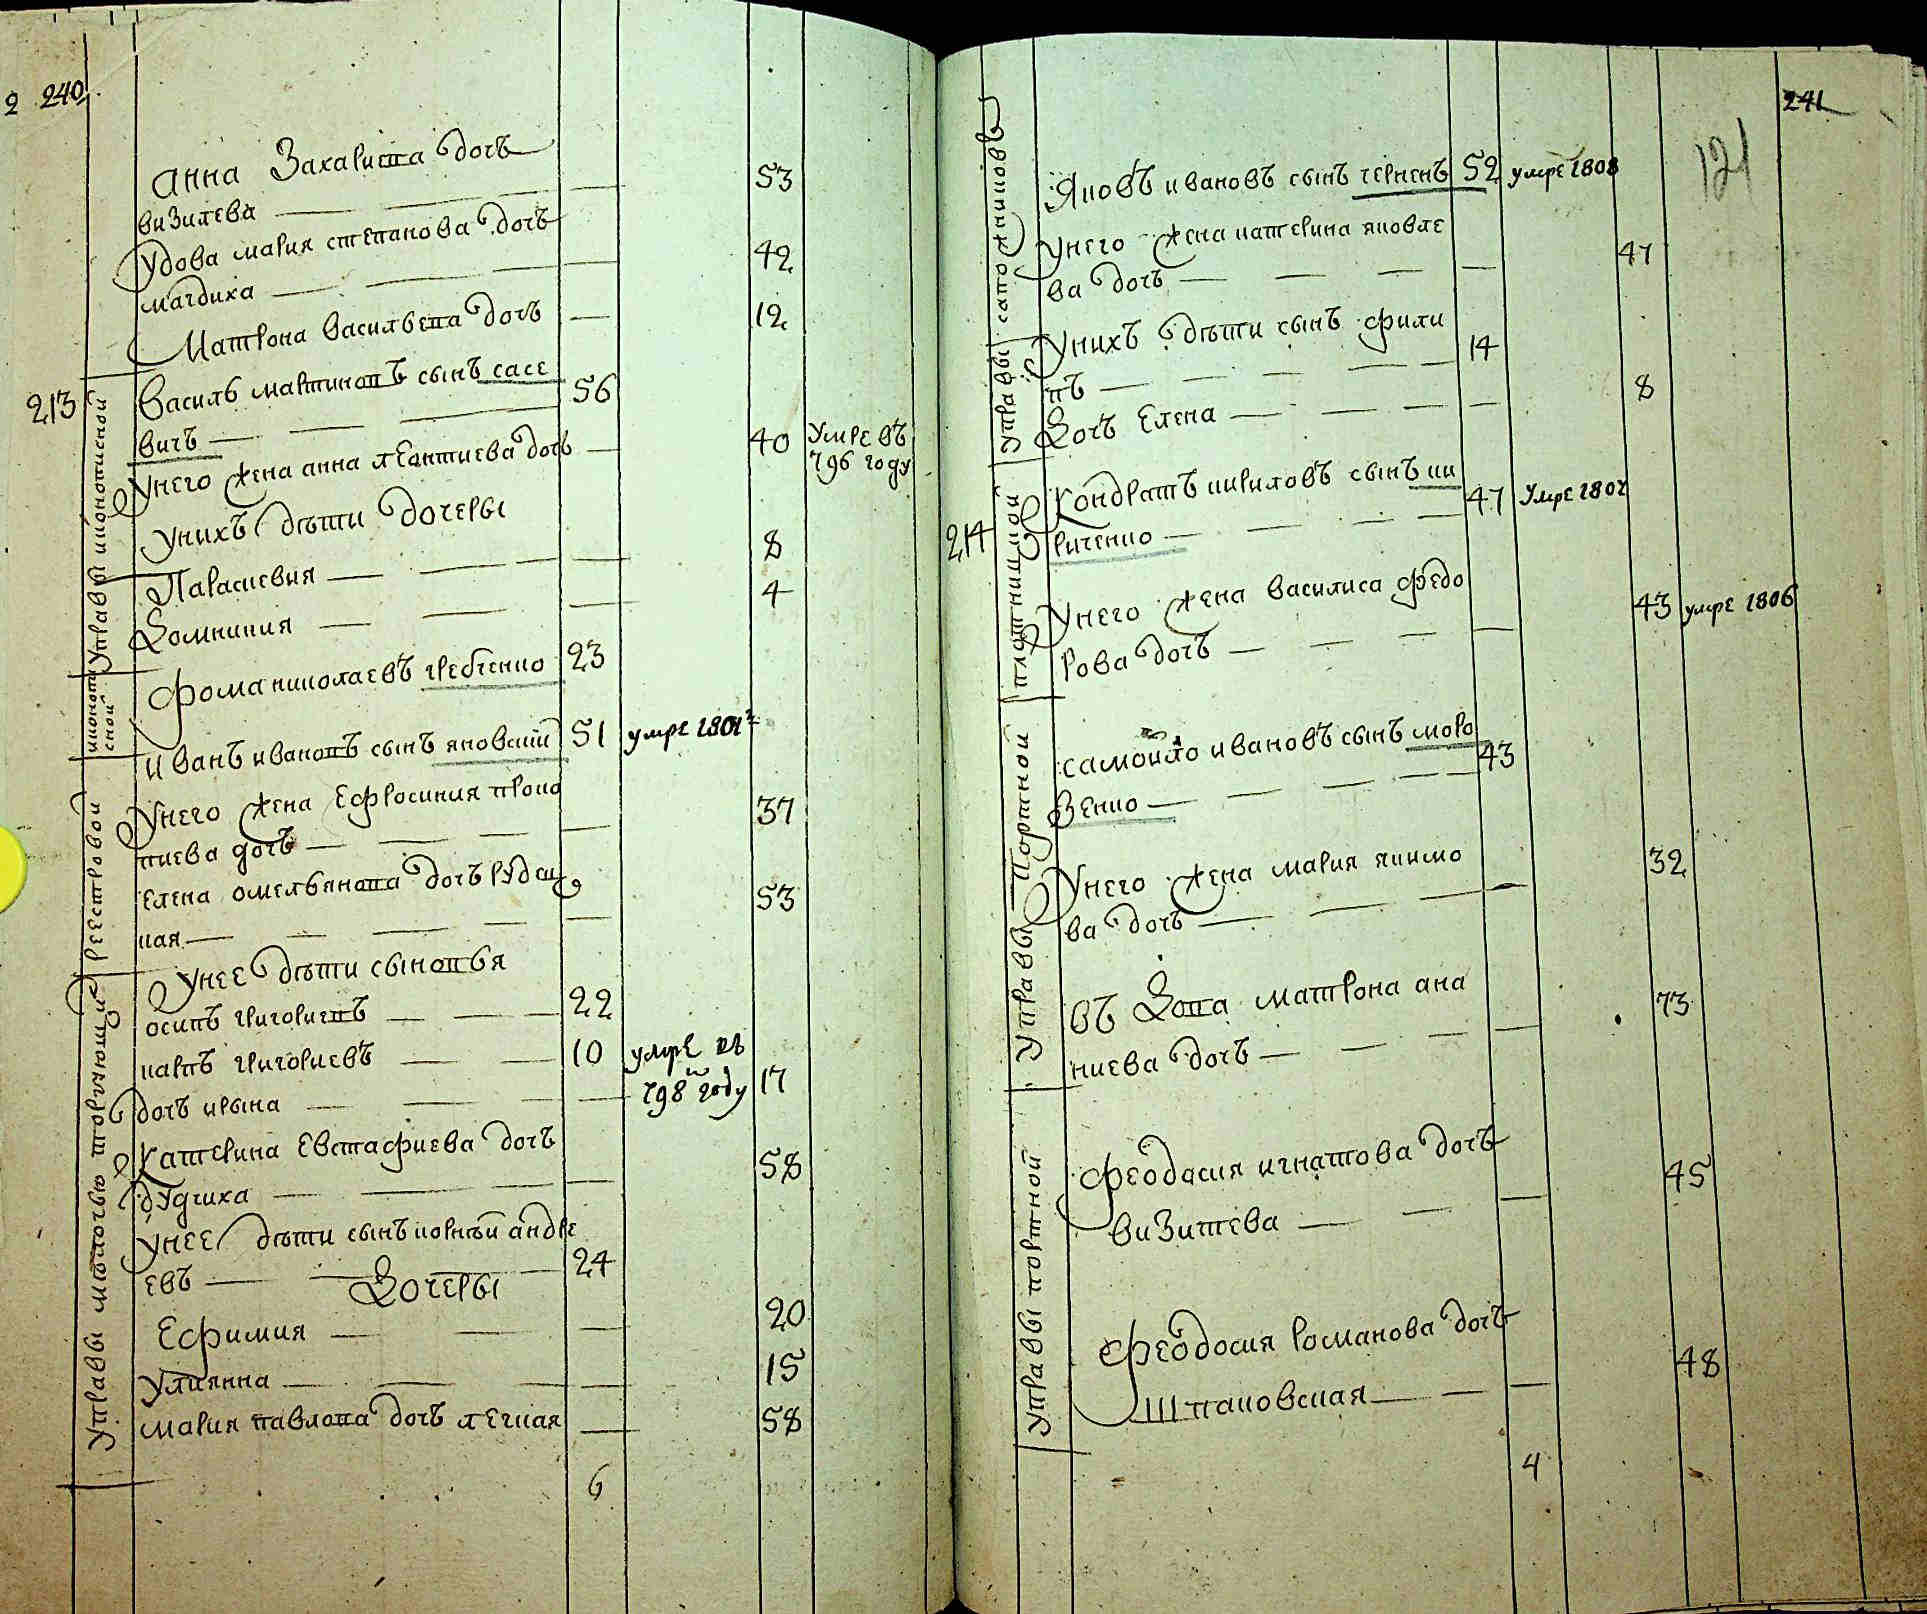 2 240
Анна Захариева дочь
визилева 53
Удова мария степанова дочь
магдиха 42
Матрона васильева дочь 12
213
управы иконописной
Василь мартиновъ сынъ сасе
вичъ 56
Унего жена анна леонтиева дочь 40 умре въ
796 году
Унихъ дѣти дочеры
Параскевия 8
Домникия 4
иконопи
сной
Фома николаевъ гребенко 23
иванъ ивановъ сынъ яновский 51 умре 1801г
реестровой
Унего жена Ефросиния проко
пиева дочь 37
Елена омельянова дочь рудск
кая 53
управы мѣлочью торгующих
Унее дѣти сыновья
осипъ григориевъ 22
карпъ григориевъ 10 умре въ
798м году
дочь ирына 17
Катерина Евстафиева дочь
дудчиха 58
Унее дѣти сынъ корнѣй андре
евъ 24
Дочеры
Ефимия 20
Улиянна 15
мария павлова дочь легкая 58
6
241
121
управы сапожницкой
Яковъ ивановъ сынъ черненъ 52 умре 1808
Унего жена катерина яковле
ва дочь 47
Унихъ дѣти сынъ фили
пъ 14
Дочь Елена 8
214
плотницкой
Кондратъ кириловъ сынъ ки
риченко 47 умре 1802
Унего жена василиса федо
рова дочь 43 умре 1806
Управы портной
самойло ивановъ сынъ моро
зенко 43
Унего жена мария якимо
ва дочь 32
въ Дова матрона ана
ниева дочь 73
управы портной
Феодосия игнатова дочь
визитева 45
Феодосия романова дочь
Шпаковская 48
4